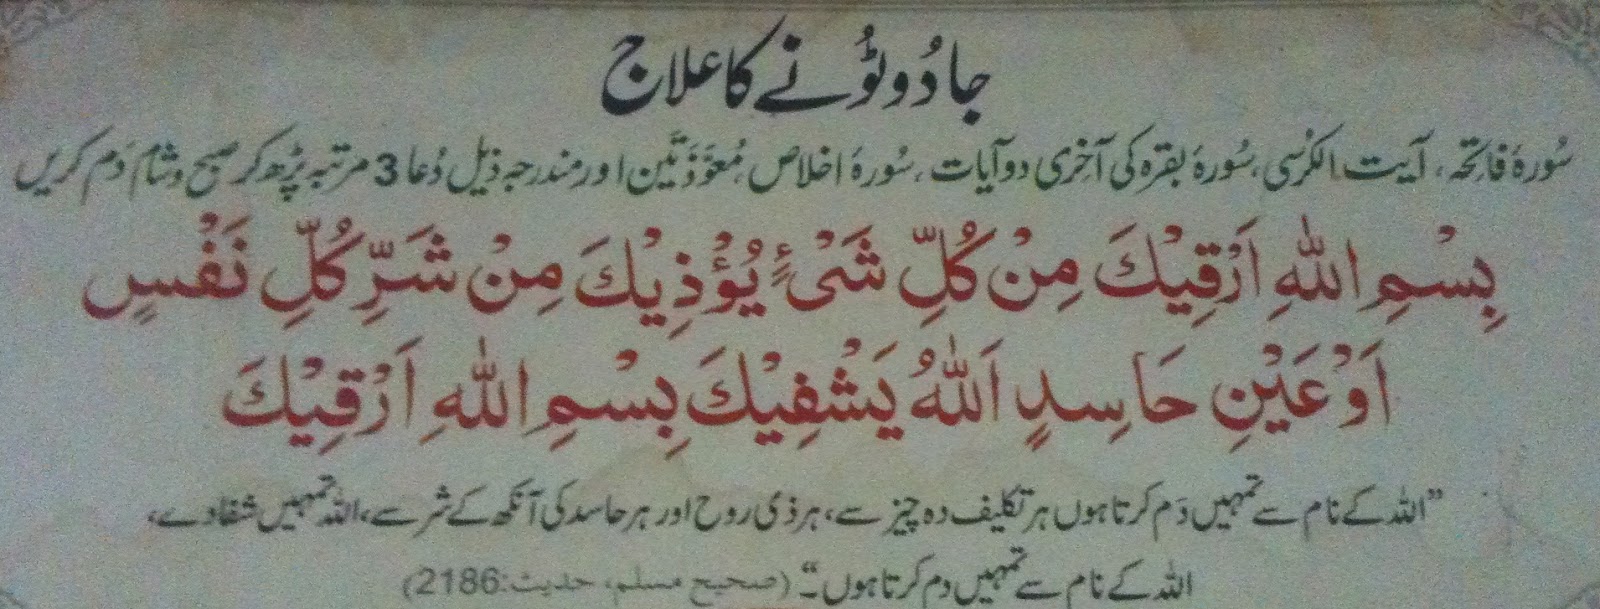 جادُو ٹُونے کا علاج
سُورۂ فاتحہ، آیت الکرسی، سُورۂ بقرہ کی آخری دو آیات، سُورۂ اخلاص، مُعَوَّذَتَین اور مندرجہ ذیل دُعا 3 مرتبہ پڑھ کر صبح و شام دَم کریں
بِسْمِ اللّٰهِ اَرْقِيْكَ مِنْ كُلِّ شَىْءٍ يُؤْذِيْكَ مِنْ شَرِّ كُلِّ نَفْسٍ
اَوْ عَيْنِ حَاسِدٍ اَللّٰهُ يَشْفِيْكَ بِسْمِ اللّٰهِ اَرْقِيْكَ
”اللہ کے نام سے تمہیں دَم کرتا ہوں ہر تکلیف دہ چیز سے، ہر ذی روح اور ہر حاسد کی آنکھ کے شر سے، اللہ تمہیں شفا دے،
اللہ کے نام سے تمہیں دم کرتا ہوں۔“ (صحیح مسلم، حدیث:2186)